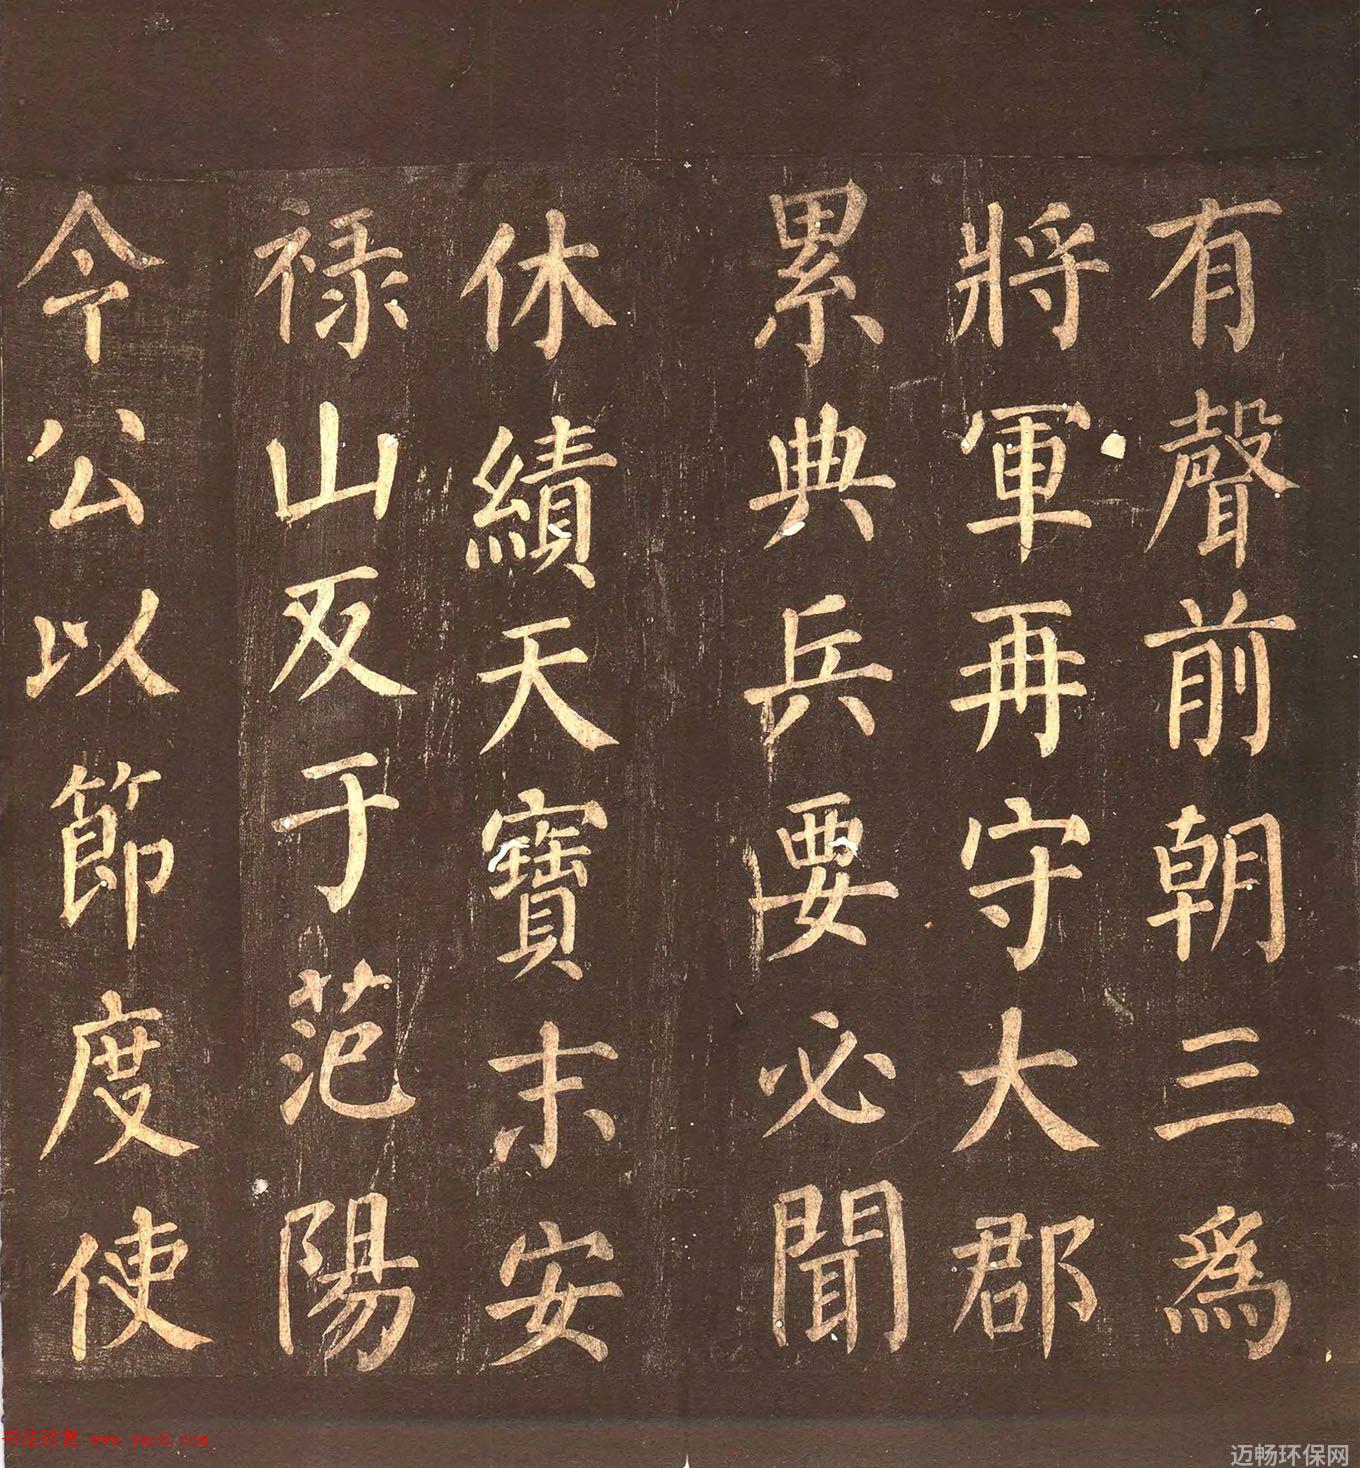 有聲前朝三為
將軍再守大郡
累典兵要必聞
休績天寶末安
禄山反于范陽
令公以節度使
书法欣赏 www.yac8.com
迈畅环保网